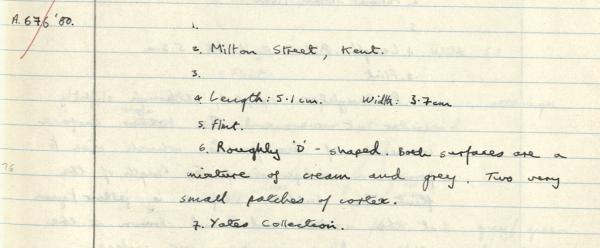 A.676'80.
1.
2. Milton Street, Kent.
3.
4 Length: 5.1cm. Width: 3.7cm
5. Flint.
6. Roughly 'D' - shaped. Both surfaces are a
mixture of cream and grey. Two very
small patches of cortex.
7. Yates Collection.